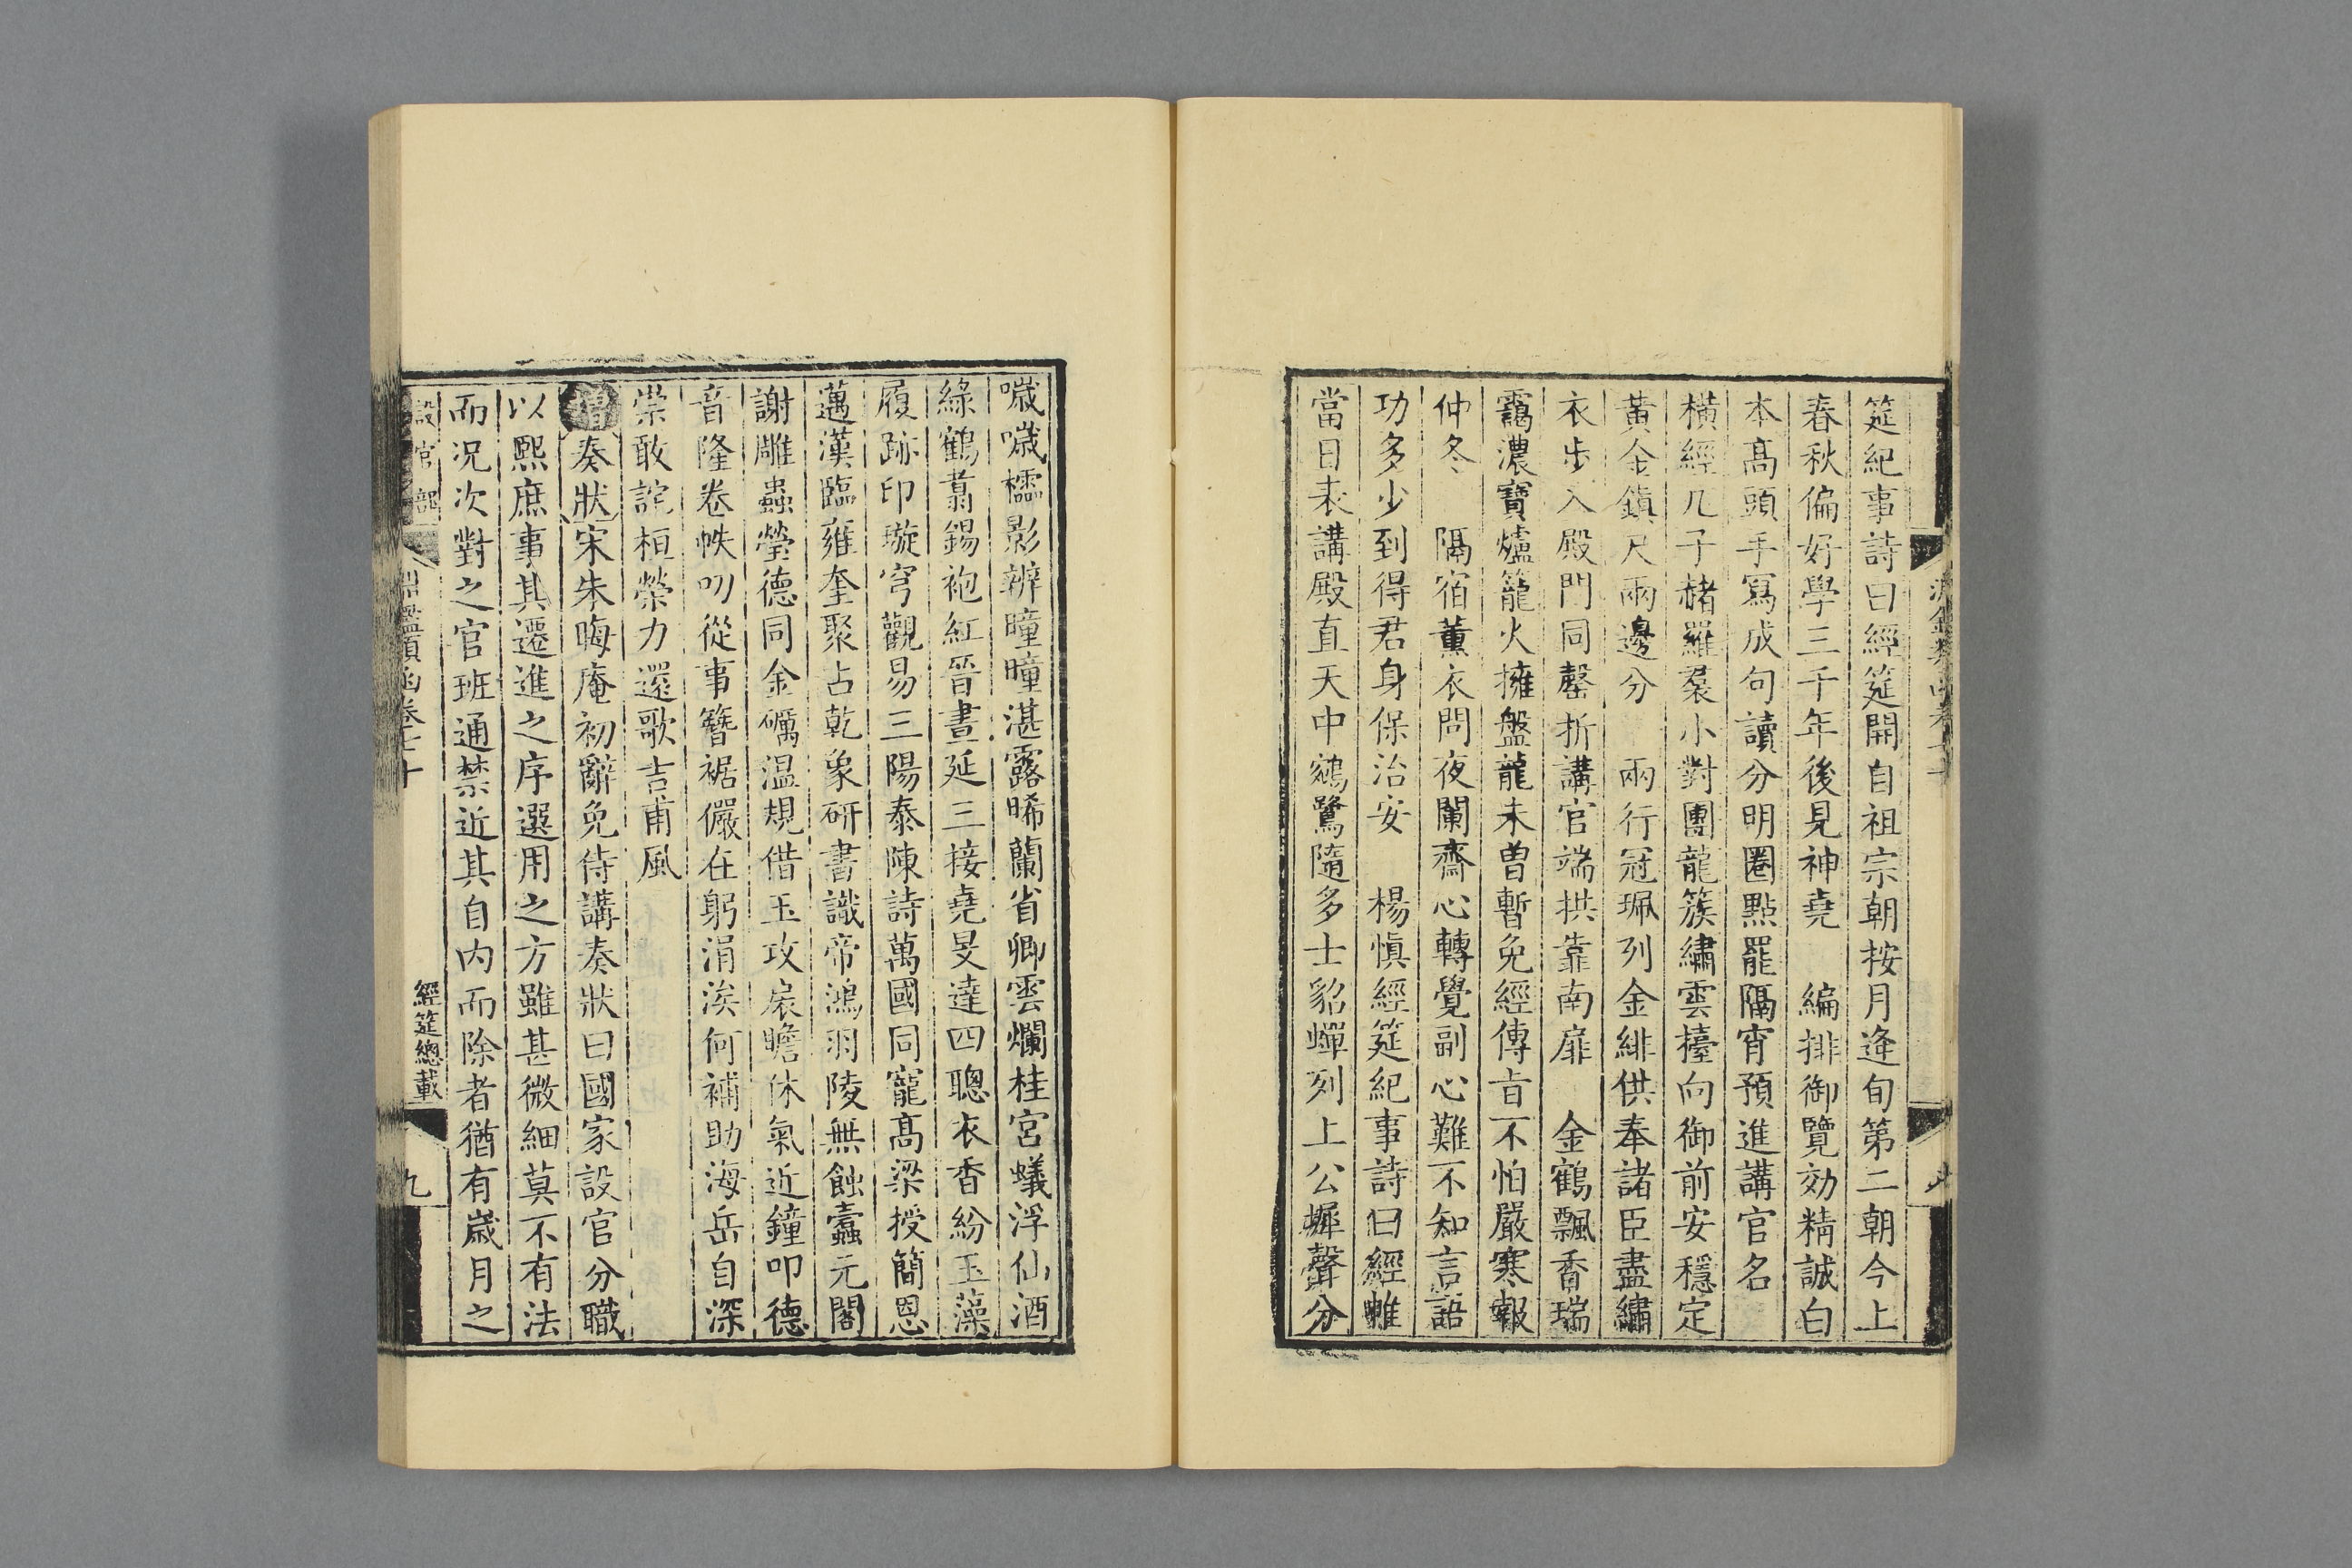 筵紀事詩曰經筵開自祖宗朝按月逄旬第二朝今上
春秋偏好學三千年後見神堯　編排御覽効精誠白
本髙頭手寫成句讀分明圈點罷隔宵預進講官名
橫經几子赭羅羣小對團龍簇繡雲擡向御前安穩定
黃金鎮尺兩邊分　兩行冠珮列金緋供奉諸臣盡繡
衣步入殿門同罄折講官端拱靠南扉　金鶴飄香瑞
靄濃寶爐籠火擁盤龍未曾暫免經傳㫖不怕嚴寒報
仲冬　隔宿薰衣問夜闌齋心轉覺副心難不知言語
功多少到得君身保治安　楊慎經筵紀事詩曰經帷
當日表講殿直天中鵷鷺隨多士貂蟬列上公墀聲分
噦噦櫺影辨曈曈湛露晞蘭省卿雲爛桂宮蟻浮仙酒
綠鶴翥錫袍紅晉晝延三接堯旻達四聰衣香紛玉藻
履跡印璇穹觀易三陽泰陳詩萬國同寵髙梁授簡恩
邁漢臨雍奎聚占乾象研書識帝鴻羽陵無蝕蠹元閣
謝雕蟲瑩德同金礪温規借玉攻扆瞻休氣近鐘叩德
音隆卷帙叨從事簪裾儼在躬涓涘何補助海岳自深
崇敢詫桓榮力還歌吉甫風
增奏狀宋朱晦庵初辭免侍講奏狀曰國家設官分職
以熙庶事其遷進之序選用之方雖甚微細莫不有法
而况次對之官班通禁近其自内而除者猶有嵗月之
設官部　淵鑑類函卷七十　經筵總載　九